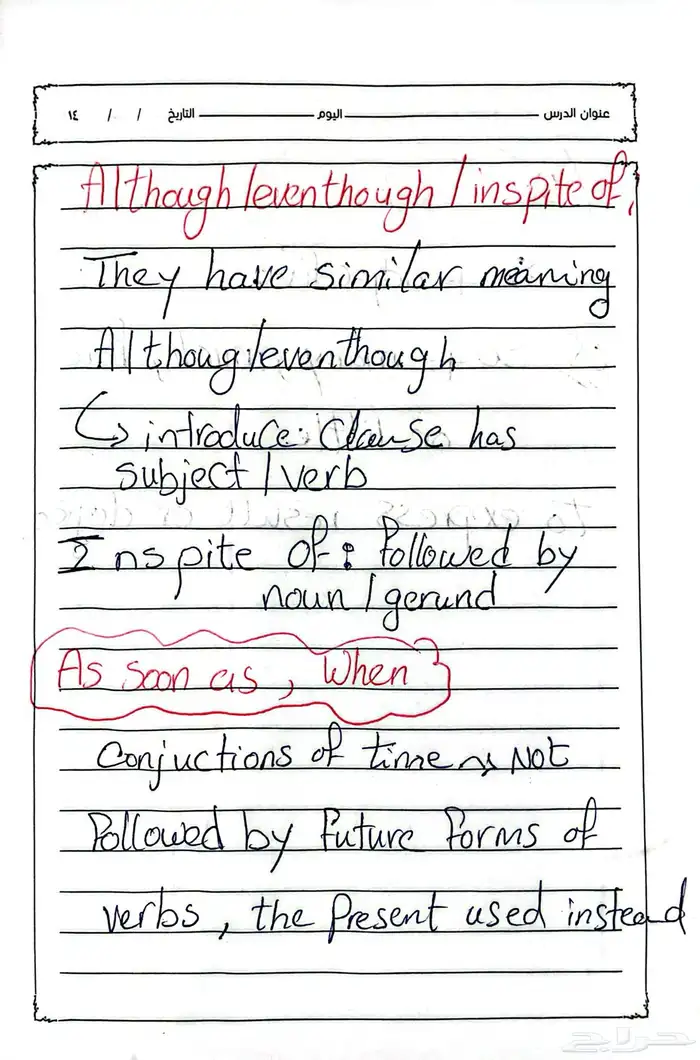 عنوان الدرس اليوم التاريخ / / ١٤
Although / eventhough / inspite of,
They have similar meaning
Althoug / eventhough
introduce: Clause has
subject / verb
Inspite of: Followed by
noun / gerund
As soon as, When
Conjuctions of time → Not
Followed by Future Forms of
verbs, the Present used instead
حراج